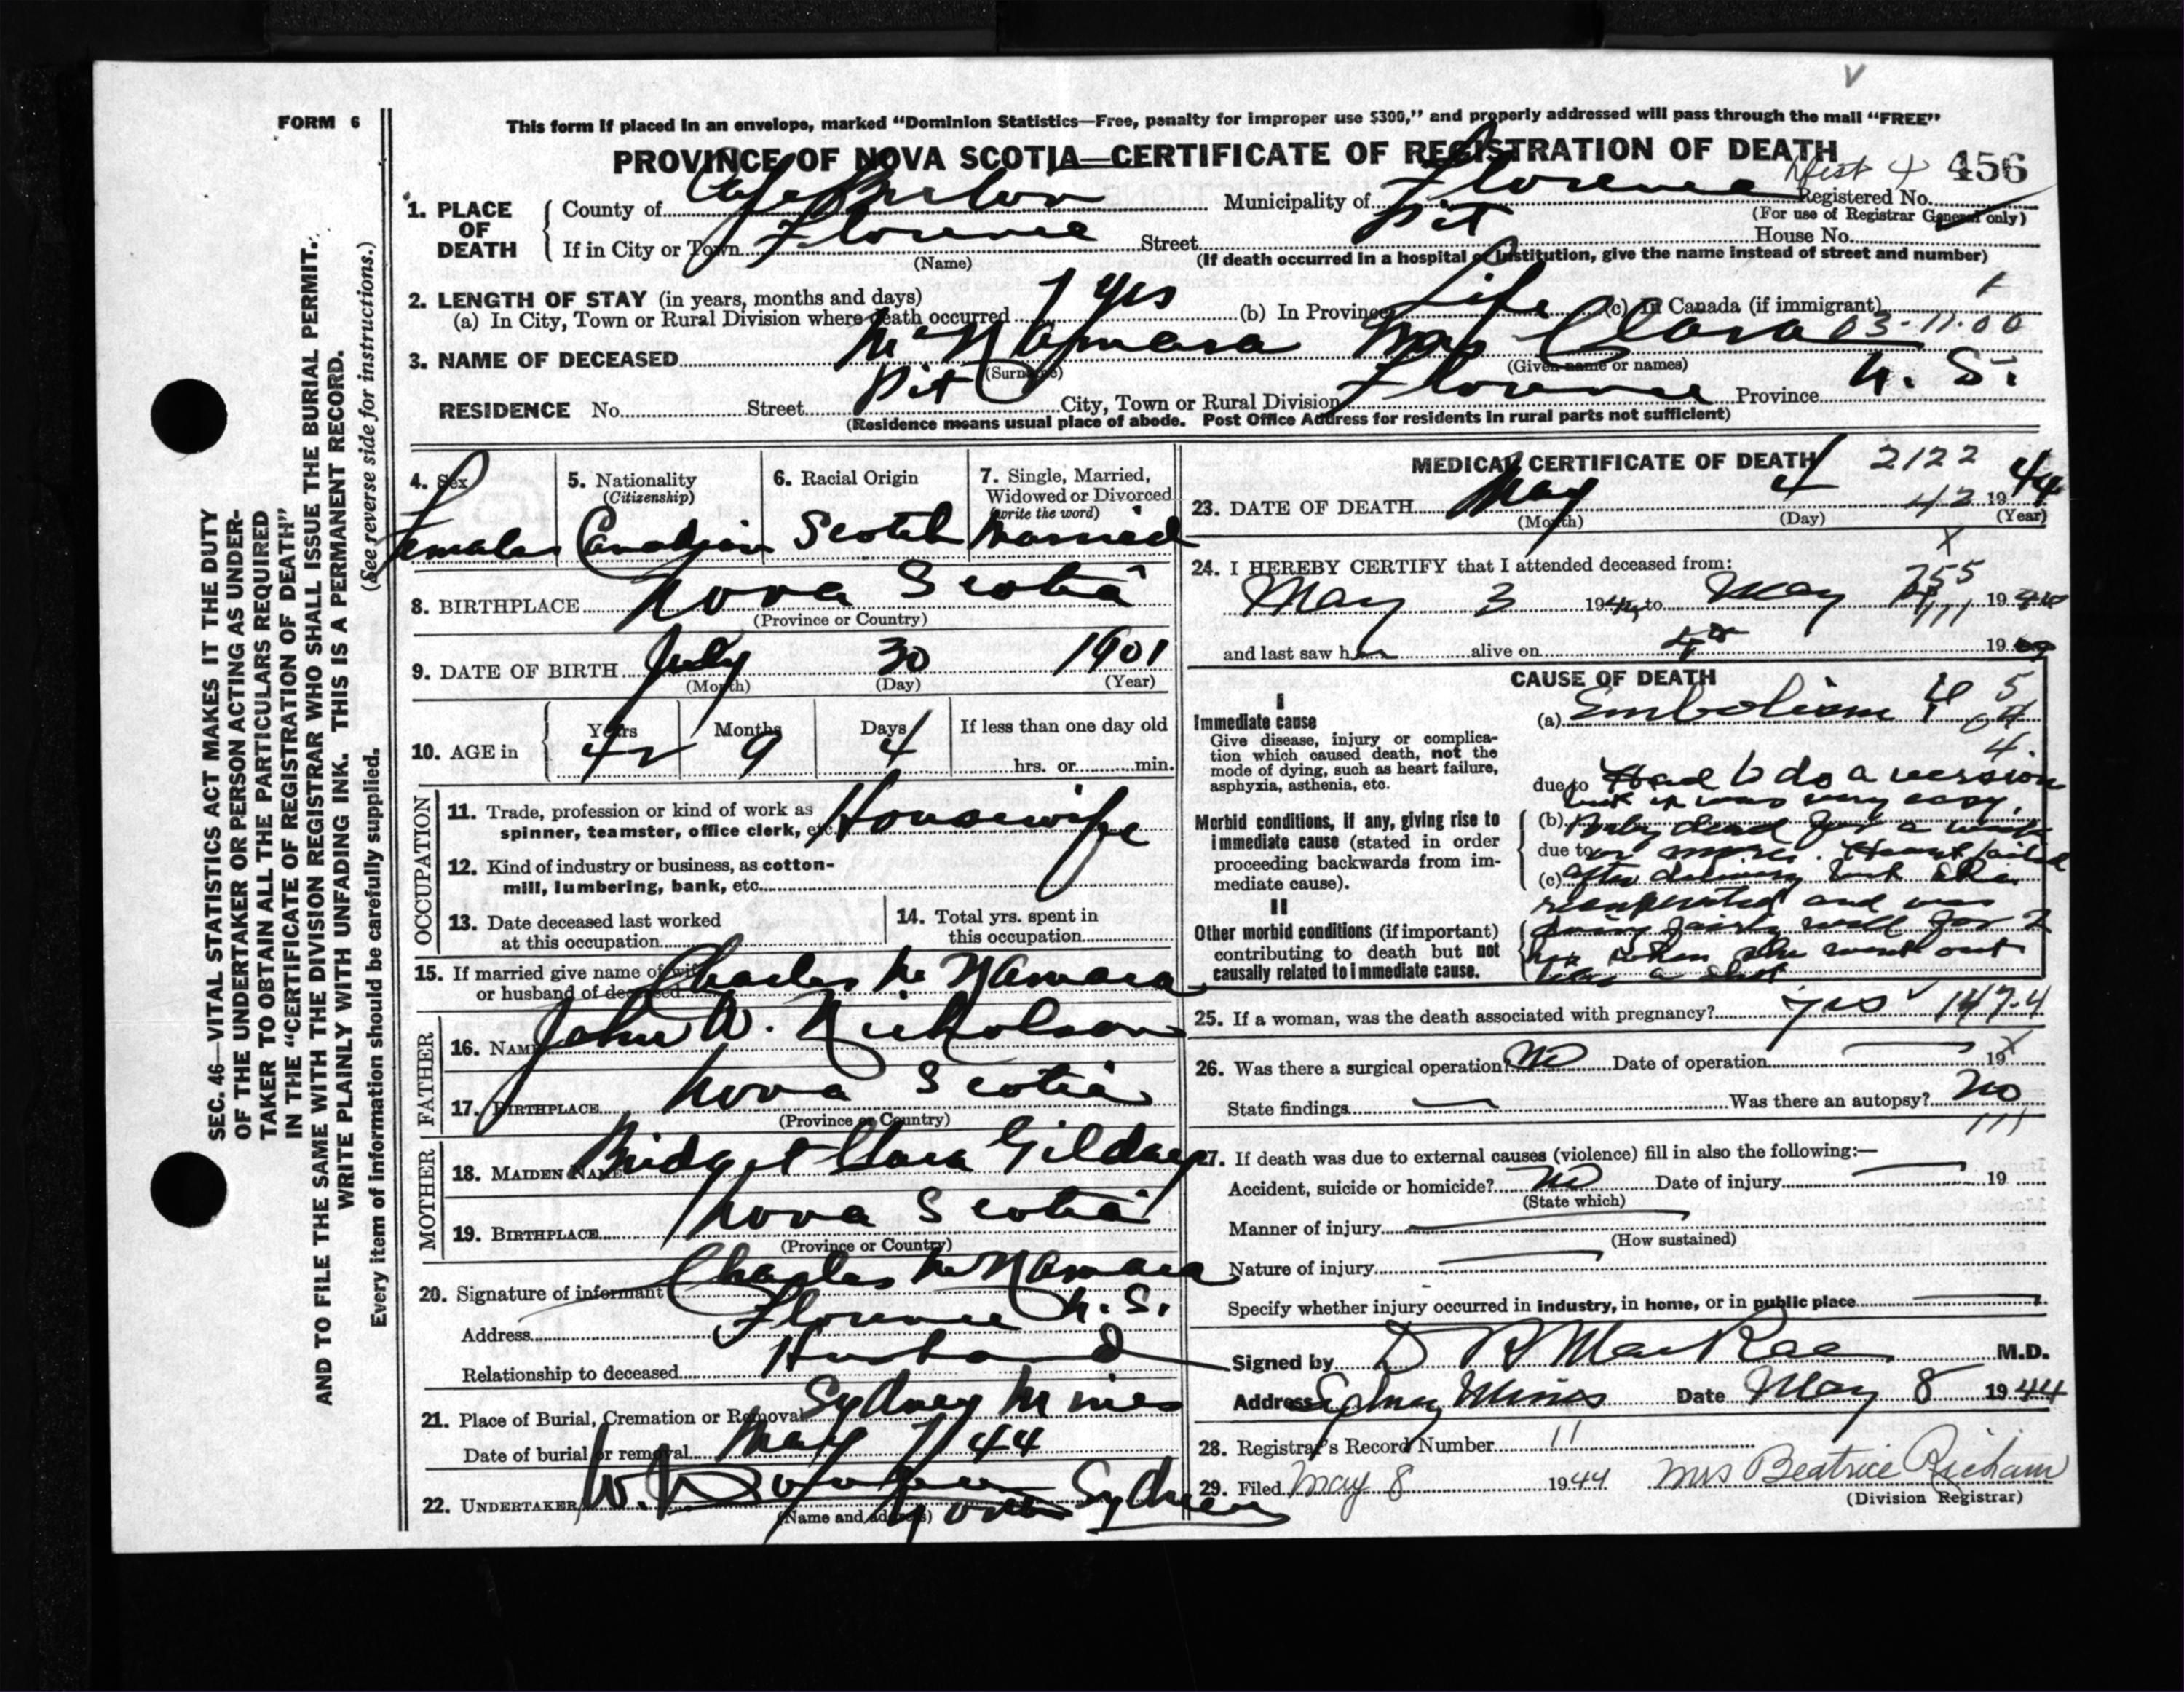 FORM 6
This form if placed in an envelope, marked "Dominion Statistics—Free, penalty for improper use $300," and properly addressed will pass through the mail "FREE"
PROVINCE OF NOVA SCOTIA—CERTIFICATE OF REGISTRATION OF DEATH
Dist 4 456
1. PLACE OF DEATH { County of Cape Breton Municipality of Florence Registered No.
(For use of Registrar General only)
If in City or Town Florence Street Pit House No.
(Name) (If death occurred in a hospital or institution, give the name instead of street and number)
2. LENGTH OF STAY (in years, months and days)
(a) In City, Town or Rural Division where death occurred 7 yrs (b) In Province Life (c) In Canada (if immigrant)
3. NAME OF DECEASED McNamara Mary Clara 03-11-00
(Surname) (Given name or names)
RESIDENCE No. Street Pit City, Town or Rural Division Florence Province N. S.
(Residence means usual place of abode. Post Office Address for residents in rural parts not sufficient)
4. Sex Female
5. Nationality (Citizenship) Canadian
6. Racial Origin Scotch
7. Single, Married, Widowed or Divorced (write the word) Married
8. BIRTHPLACE Nova Scotia
(Province or Country)
9. DATE OF BIRTH July 30 1901
(Month) (Day) (Year)
10. AGE in { Years 42 Months 9 Days 4 If less than one day old
hrs. or min.
OCCUPATION
11. Trade, profession or kind of work as spinner, teamster, office clerk, etc. Housewife
12. Kind of industry or business, as cotton-mill, lumbering, bank, etc.
13. Date deceased last worked at this occupation
14. Total yrs. spent in this occupation
15. If married give name of wife or husband of deceased Charles McNamara
FATHER
16. NAME John W. Nicholson
17. BIRTHPLACE Nova Scotia
(Province or Country)
MOTHER
18. MAIDEN NAME Bridget Clara Gilday
19. BIRTHPLACE Nova Scotia
(Province or Country)
20. Signature of informant Charles McNamara
Address Florence N.S.
Relationship to deceased Husband
21. Place of Burial, Cremation or Removal Sydney Mines
Date of burial or removal May 7/44
22. UNDERTAKER W. North Sydney
(Name and address)
MEDICAL CERTIFICATE OF DEATH 2122
23. DATE OF DEATH May 4 1944
(Month) (Day) (Year)
24. I HEREBY CERTIFY that I attended deceased from:
May 3 1944 to May 1944
and last saw her alive on 4th 19
CAUSE OF DEATH
I
Immediate cause
Give disease, injury or complication which caused death, not the mode of dying, such as heart failure, asphyxia, asthenia, etc.
(a) Embolism
due to Had to do a version
but it was very easy.
Morbid conditions, if any, giving rise to immediate cause (stated in order proceeding backwards from immediate cause).
(b) Baby dead for a week
due to or more. Heart failed
(c) after delivery but she
recuperated and was
II
Other morbid conditions (if important) contributing to death but not causally related to immediate cause.
doing fairly well for 2
hrs when she went out
like a shot
25. If a woman, was the death associated with pregnancy? yes 147.4
26. Was there a surgical operation? No Date of operation 19
State findings — Was there an autopsy? No
27. If death was due to external causes (violence) fill in also the following:—
Accident, suicide or homicide? No Date of injury 19
(State which)
Manner of injury
(How sustained)
Nature of injury
Specify whether injury occurred in industry, in home, or in public place
Signed by D R MacRae M.D.
Address Sydney Mines Date May 8 1944
28. Registrar's Record Number 11
29. Filed May 8 1944 Mrs Beatrice Richam
(Division Registrar)
SEC. 46—VITAL STATISTICS ACT MAKES IT THE DUTY
OF THE UNDERTAKER OR PERSON ACTING AS UNDER-
TAKER TO OBTAIN ALL THE PARTICULARS REQUIRED
IN THE "CERTIFICATE OF REGISTRATION OF DEATH"
AND TO FILE THE SAME WITH THE DIVISION REGISTRAR WHO SHALL ISSUE THE BURIAL PERMIT.
WRITE PLAINLY WITH UNFADING INK. THIS IS A PERMANENT RECORD.
Every item of information should be carefully supplied. (See reverse side for instructions.)